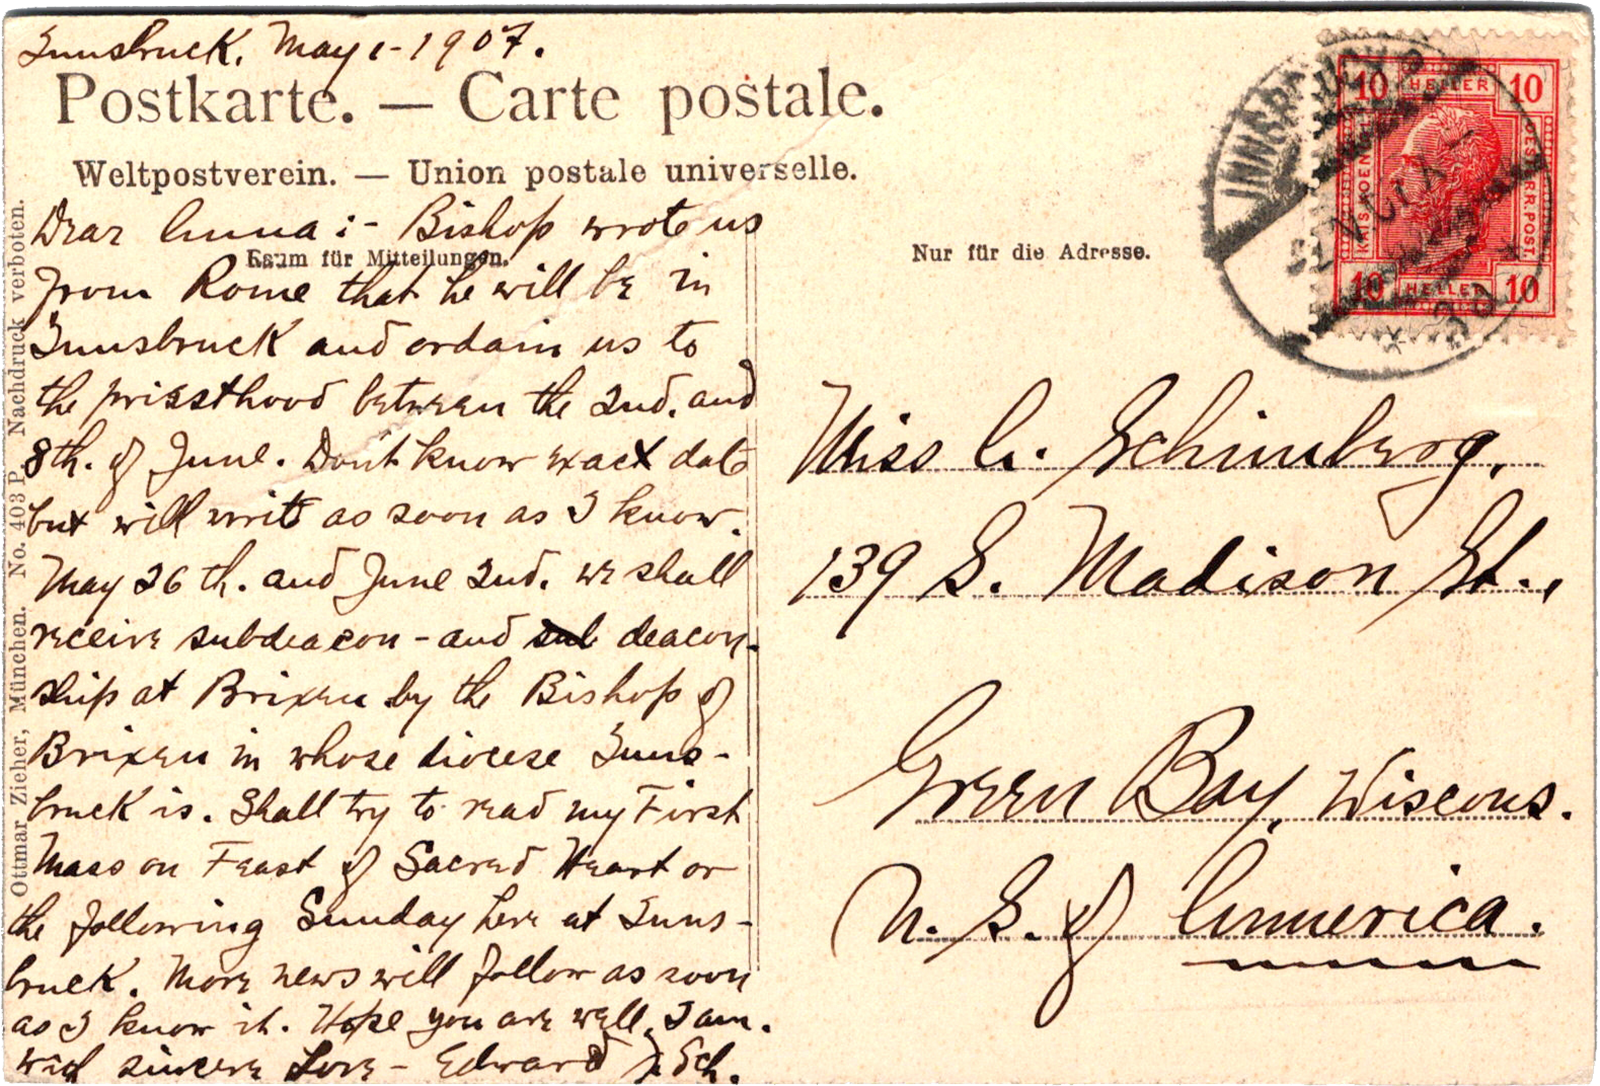 Innsbruck, May 1-1907.
Postkarte. — Carte postale.
Weltpostverein. — Union postale universelle.
Dear Anna :- Bishop wrote us
Raum für Mitteilungen.
from Rome that he will be in
Innsbruck and ordain us to
the priesthood between the 2nd. and
8th. of June. Don't know exact date
but will write as soon as I know.
May 26 th. and June 2nd. we shall
receive subdeacon - and sub deacon-
ship at Brixen by the Bishop of
Brixen in whose diocese Inns-
bruck is. Shall try to read my First
Mass on Feast of Sacred Heart or
the following Sunday here at Inns-
bruck. More news will follow as soon
as I know it. Hope you are well, I am.
with sincere Love - Edward J. Sch.
Ottmar Zieher, München. No. 403 P. Nachdruck verboten.
Nur für die Adresse.
10 HELLER 10
10 HELLER 10
INNSBRUCK
Miss A. Schimberg,
139 S. Madison St.,
Green Bay, Wiscons.
U. S. of America.